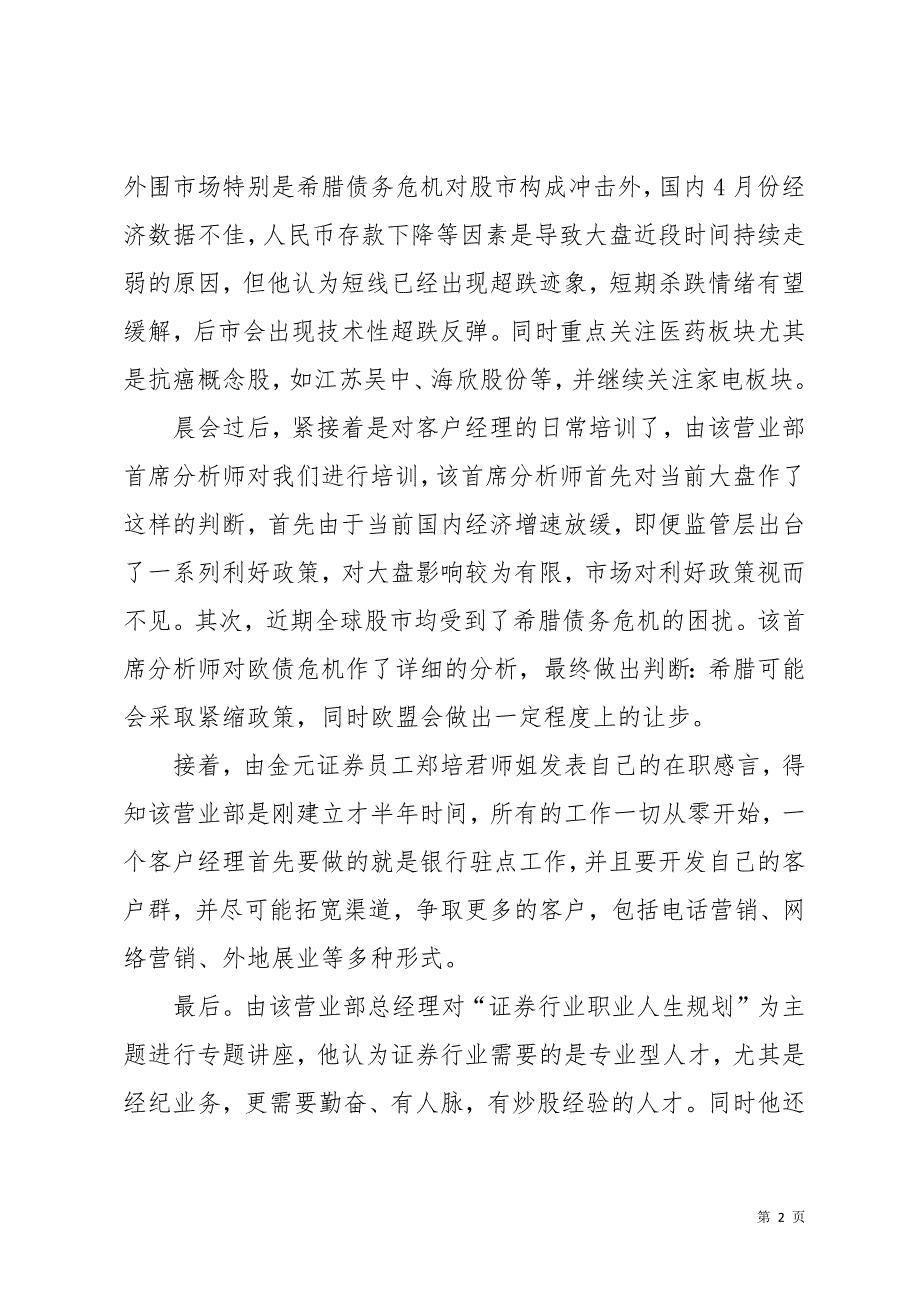 外围市场特别是希腊债务危机对股市构成冲击外，国内 4 月份经
济数据不佳，人民币存款下降等因素是导致大盘近段时间持续走
弱的原因，但他认为短线已经出现超跌迹象，短期杀跌情绪有望
缓解，后市会出现技术性超跌反弹。同时重点关注医药板块尤其
是抗癌概念股，如江苏吴中、海欣股份等，并继续关注家电板块。
晨会过后，紧接着是对客户经理的日常培训了，由该营业部
首席分析师对我们进行培训，该首席分析师首先对当前大盘作了
这样的判断，首先由于当前国内经济增速放缓，即便监管层出台
了一系列利好政策，对大盘影响较为有限，市场对利好政策视而
不见。其次，近期全球股市均受到了希腊债务危机的困扰。该首
席分析师对欧债危机作了详细的分析，最终做出判断：希腊可能
会采取紧缩政策，同时欧盟会做出一定程度上的让步。
接着，由金元证券员工郑培君师姐发表自己的在职感言，得
知该营业部是刚建立才半年时间，所有的工作一切从零开始，一
个客户经理首先要做的就是银行驻点工作，并且要开发自己的客
户群，并尽可能拓宽渠道，争取更多的客户，包括电话营销、网
络营销、外地展业等多种形式。
最后。由该营业部总经理对“证券行业职业人生规划”为主
题进行专题讲座，他认为证券行业需要的是专业型人才，尤其是
经纪业务，更需要勤奋、有人脉，有炒股经验的人才。同时他还
第 2 页